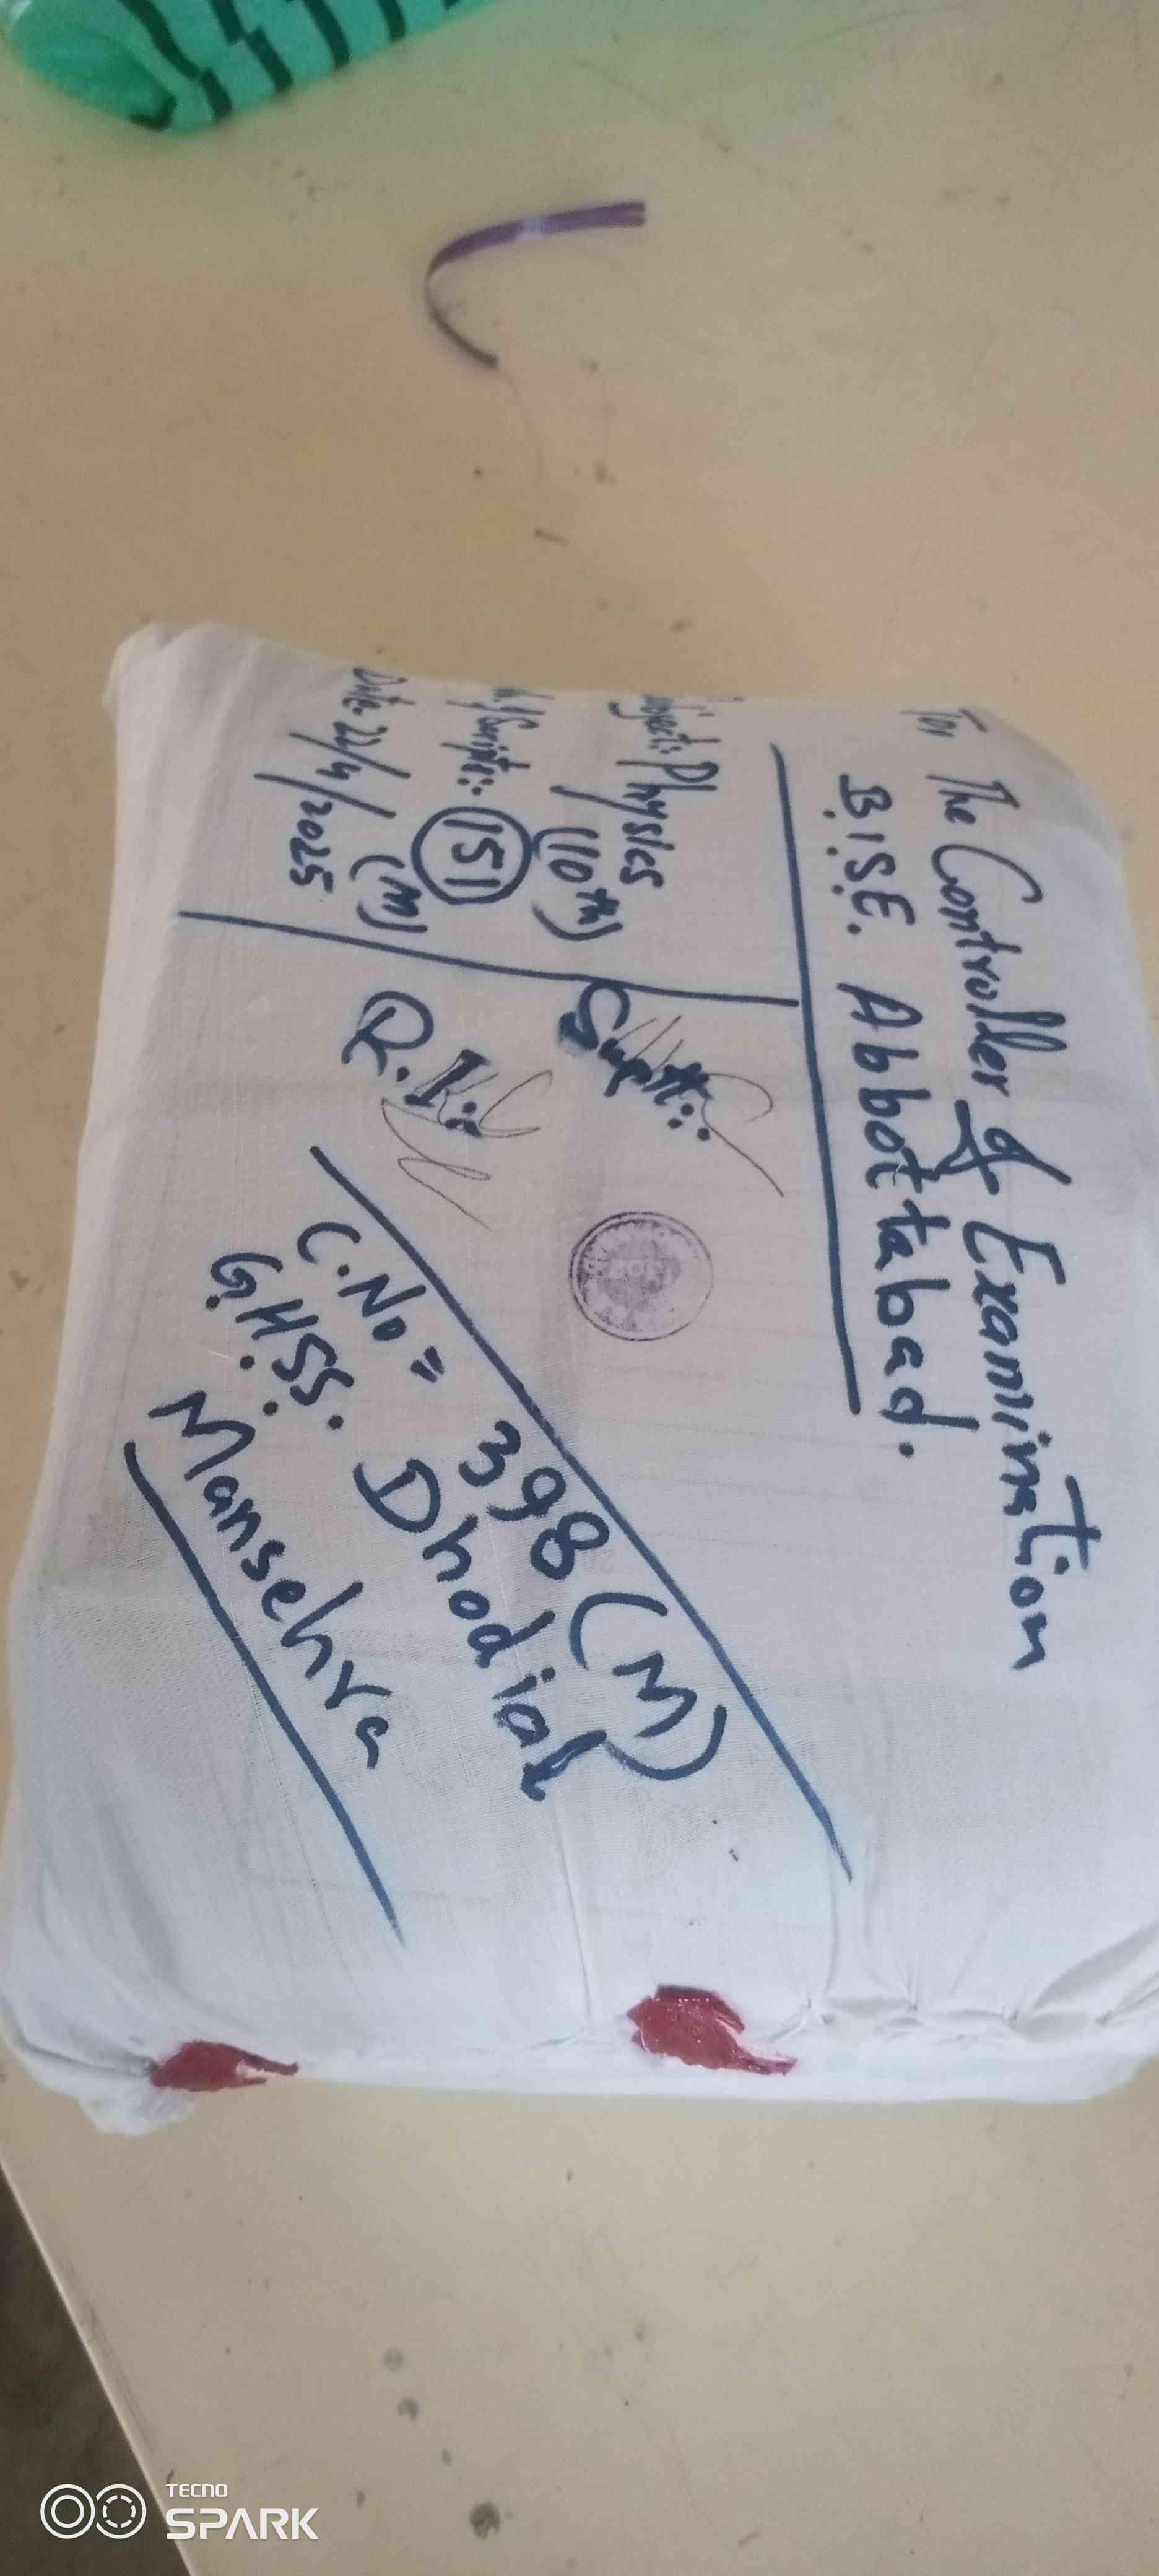 To, The Controller of Examination
B.I.S.E. Abbottabad.
Physics
(10th)
Scripts: 151
Date: 22/4/2025 (M)
Supdt:
R.I:
C.No = 398 (M)
G.H.S.S. Dhodial
Mansehra
TECNO
SPARK